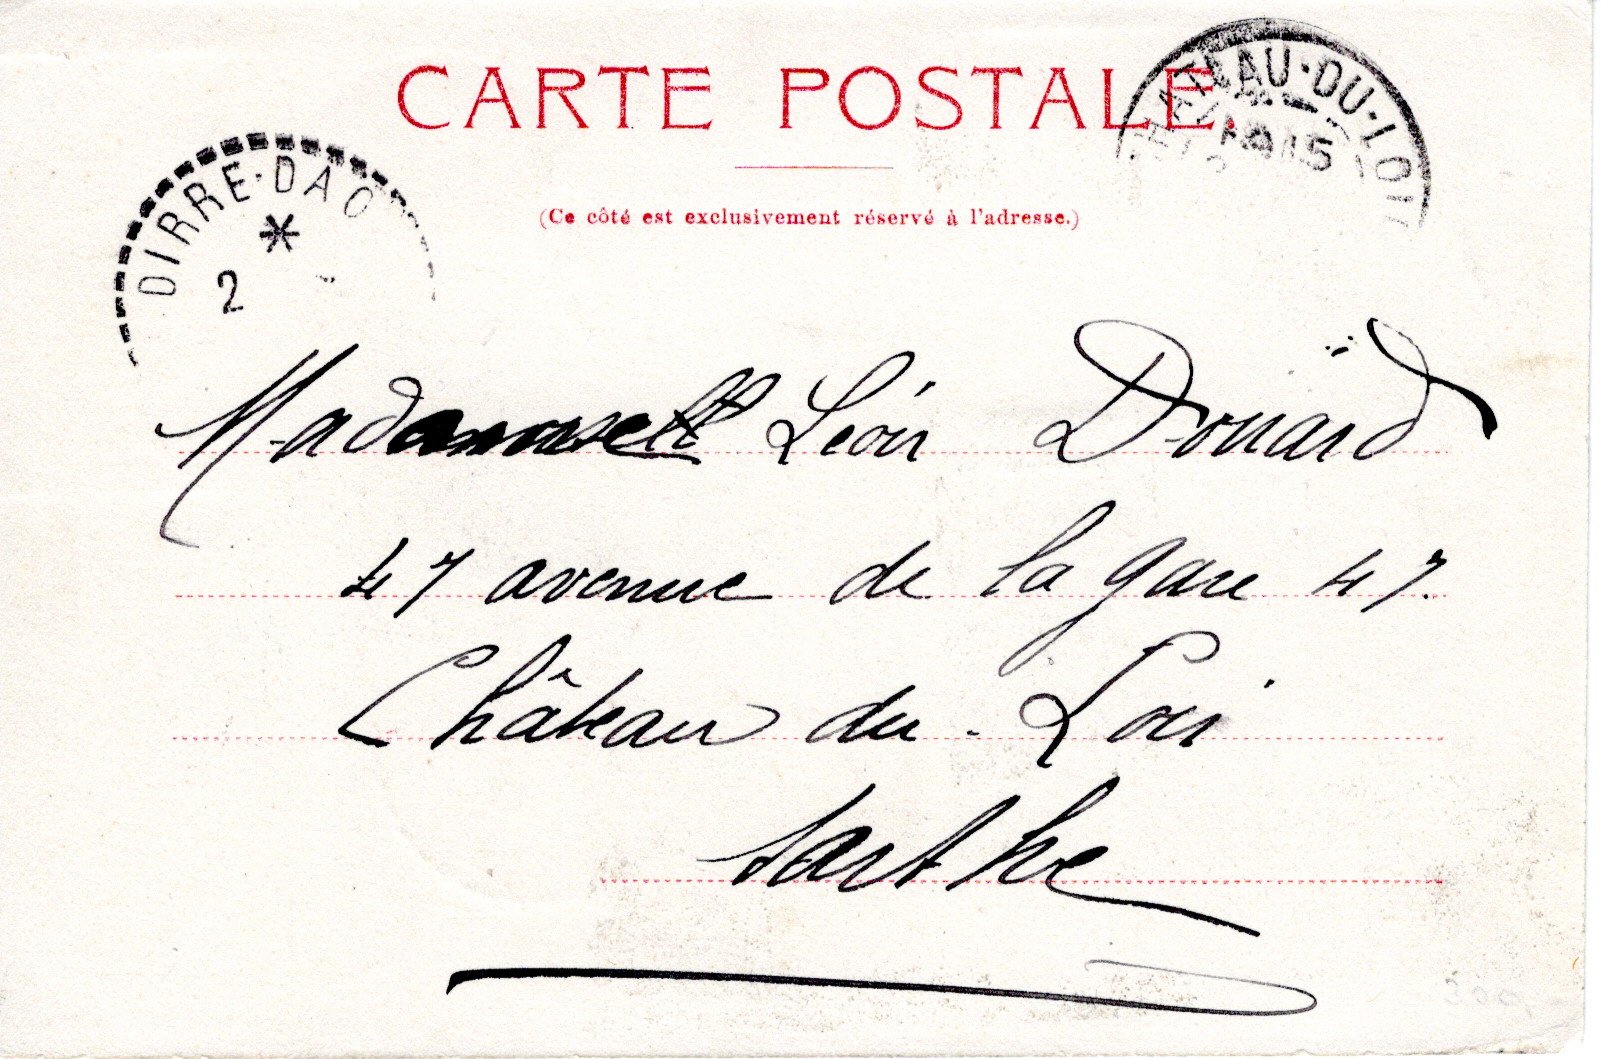 CARTE POSTALE.
(Ce côté est exclusivement réservé à l'adresse.)
DIRRE-DAO
*
2
CHATEAU-DU-LOIR
15
Léon Doüard
47 avenue de la gare 47.
Château du Loir
Sarthe